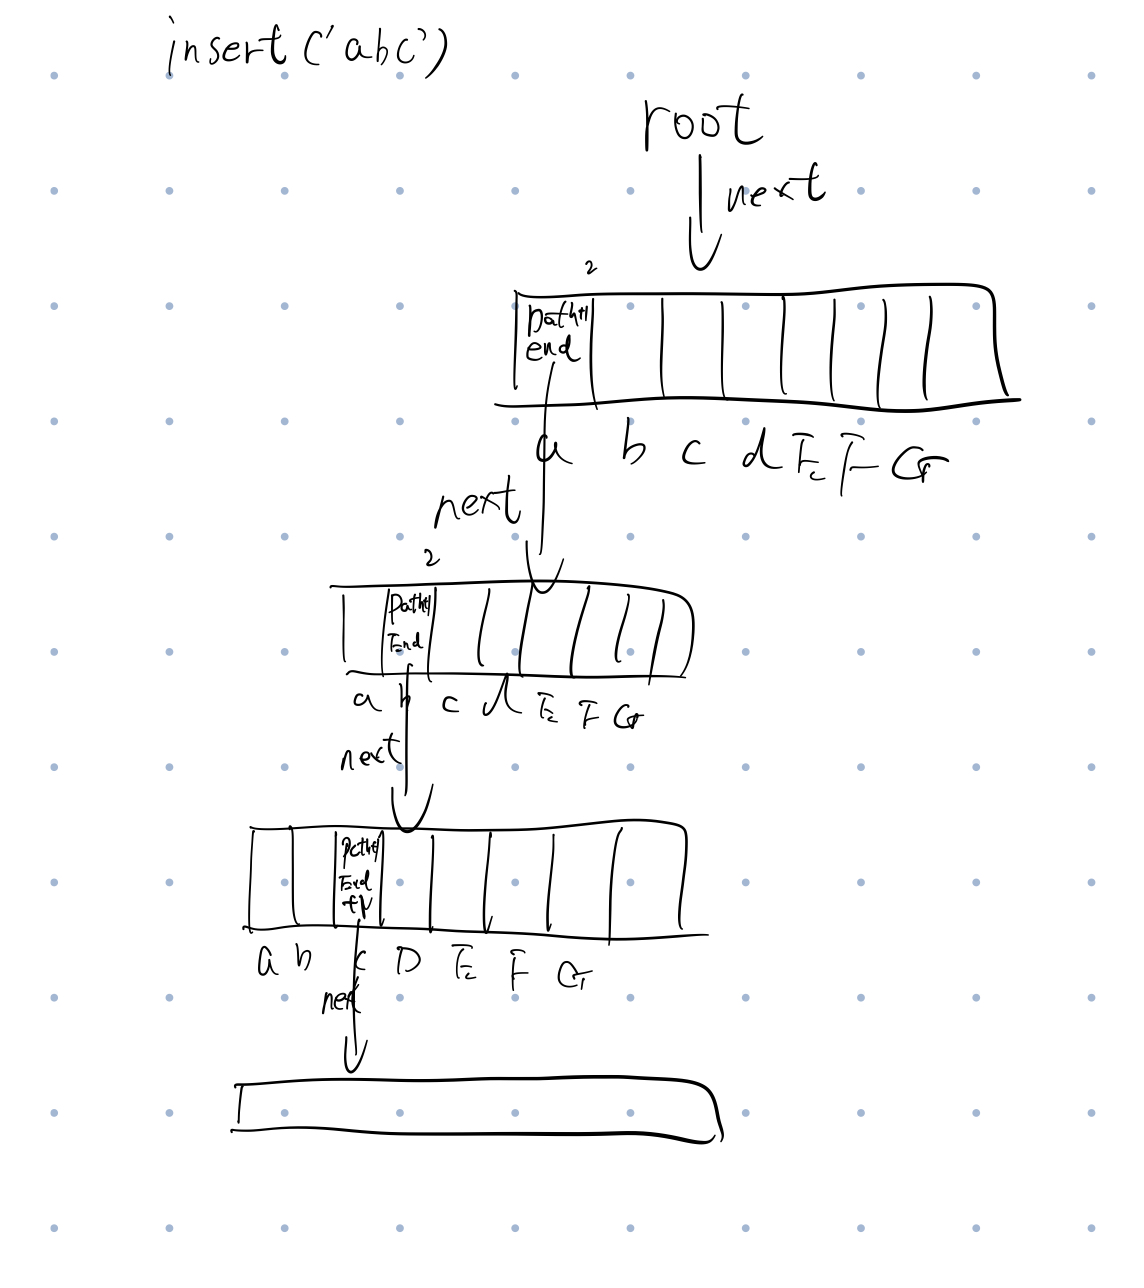 insert ('abc')
root
next
2
path+1
end
a b c d E F G
next
2
path+1
End
a b c d E F G
next
path+1
End
+1
a b c D E F G
next